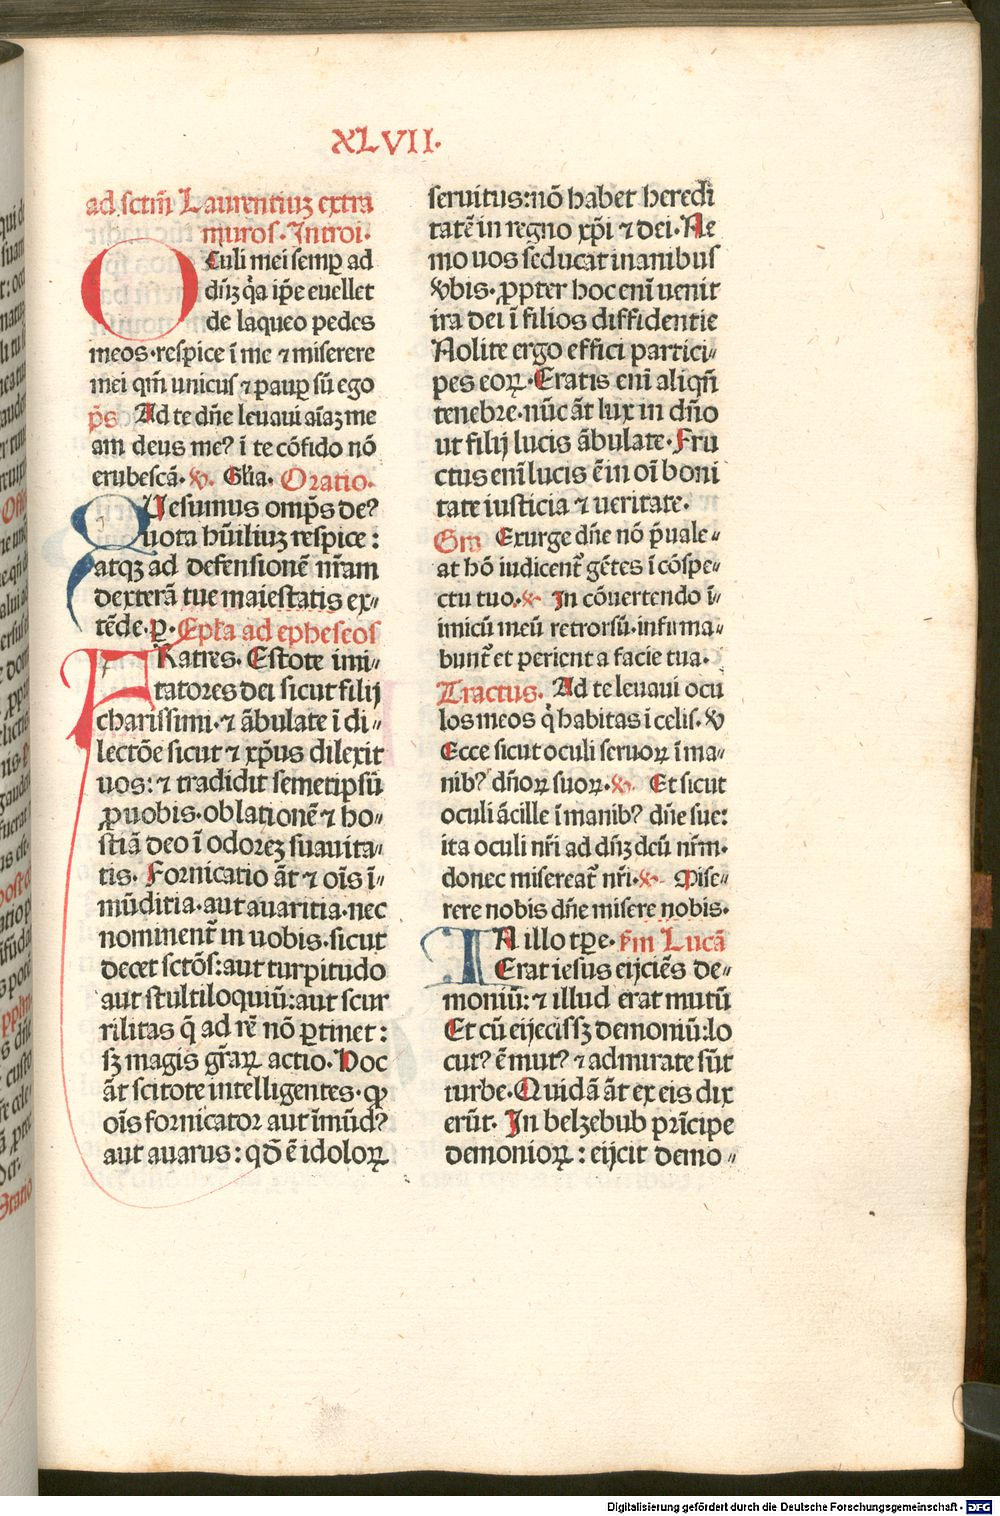 XLVII.
ad sctm̄ Laurentiuꝫ extra
muros. Introi.
OCuli mei semꝑ ad
dn̄ꝫ q̄a ip̄e euellet
de laqueo pedes
meos·respice ī me ⁊ miserere
mei qm̄ unicus ⁊ pauꝑ sū ego
p̄s Ad te dn̄e leuaui aīaꝫ me
am deus me? ī te cōfido nō
erubescā. ℣. Gl'ia. Oratio.
QUesumus omp̄s de?
uota hūiliuꝫ respice:
atqꝫ ad defensionē nr̄am
dexterā tue maiestatis ex〃
tēde.ꝑ. Epl'a ad epheseos
FRatres. Estote imi〃
tatores dei sicut filij
charissimi·⁊ ābulate ī di〃
lectōe sicut ⁊ xp̄us dilexit
uos: ⁊ tradidit semetipsū
ꝓ uobis·oblationē ⁊ ho〃
stiā deo ī odoreꝫ suauita〃
tis. Fornicatio āt ⁊ oīs ī〃
mūditia·aut auaritia·nec
nominent᷑ in uobis·sicut
decet sctōs: aut turpitudo
aut stultiloquiū: aut scur
rilitas q̄ ad rē nō ꝑtinet:
sꝫ magis gr̄aꝝ actio. Hoc
āt scitote intelligentes·ꝙ
oīs fornicator aut īmūd?
aut auarus: qd̄ ē idoloꝝ
seruitus: nō habet heredi
tatē in regno xp̄i ⁊ dei. Ne
mo uos seducat inanibus
v̄bis·ꝓpter hoc enī uenit
ira dei ī filios diffidentie
Nolite ergo effici partici〃
pes eoꝝ. Eratis enī aliqn̄
tenebre·nūc āt lux in dn̄o
ut filij lucis ābulate. Fru
ctus enī lucis ē in oī boni
tate iusticia ⁊ ueritate.
Gra Exurge dn̄e nō p̄uale〃
at hō iudicent᷑ gētes ī cōspe〃
ctu tuo. ℣ In cōuertendo ī〃
imicū meū retrorsū·infirma〃
bunt᷑ et perient a facie tua.
Tractus. Ad te leuaui ocu
los meos q̄ habitas ī celis. ℣
Ecce sicut oculi seruoꝝ ī ma〃
nib? dn̄oꝝ suoꝝ. ℣ Et sicut
oculi ācille ī manib? dn̄e sue:
ita oculi nr̄i ad dn̄ꝫ deū nr̄m·
donec misereat᷑ nr̄i. ℣ Mise〃
rere nobis dn̄e misere nobis.
IN illo tꝑe. s̄m Lucā
Erat iesus eijciēs de〃
moniū: ⁊ illud erat mutū
Et cū eijecissꝫ demoniū: lo
cut? ē mut? ⁊ admirate sūt
turbe. Quidā āt ex eis dix
erūt. In belzebub prīcipe
demonioꝝ: eijcit demo〃
Digitalisierung gefördert durch die Deutsche Forschungsgemeinschaft - DFG